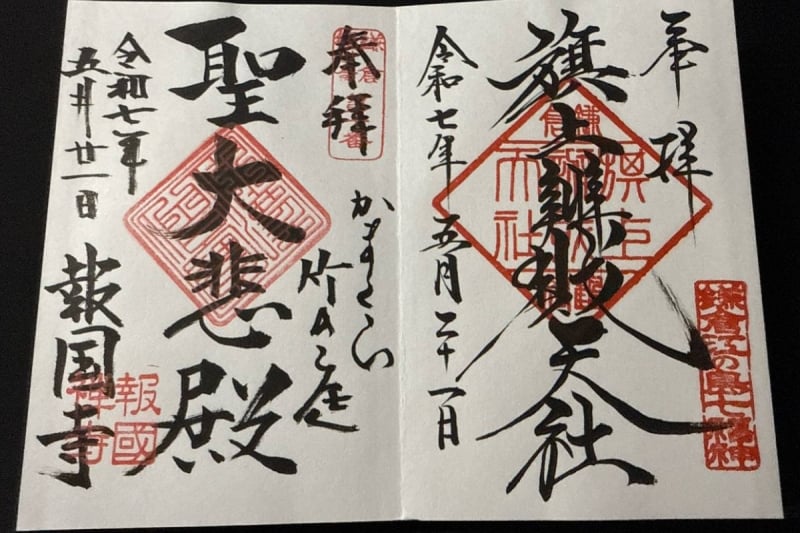 奉拝
旗上辨財天社
令和七年 五月二十一日
鎌倉江の島七福神
奉拝
かまくら
竹の庭
聖大悲殿
令和七年
五月廿一日
報国寺
報國
禅寺